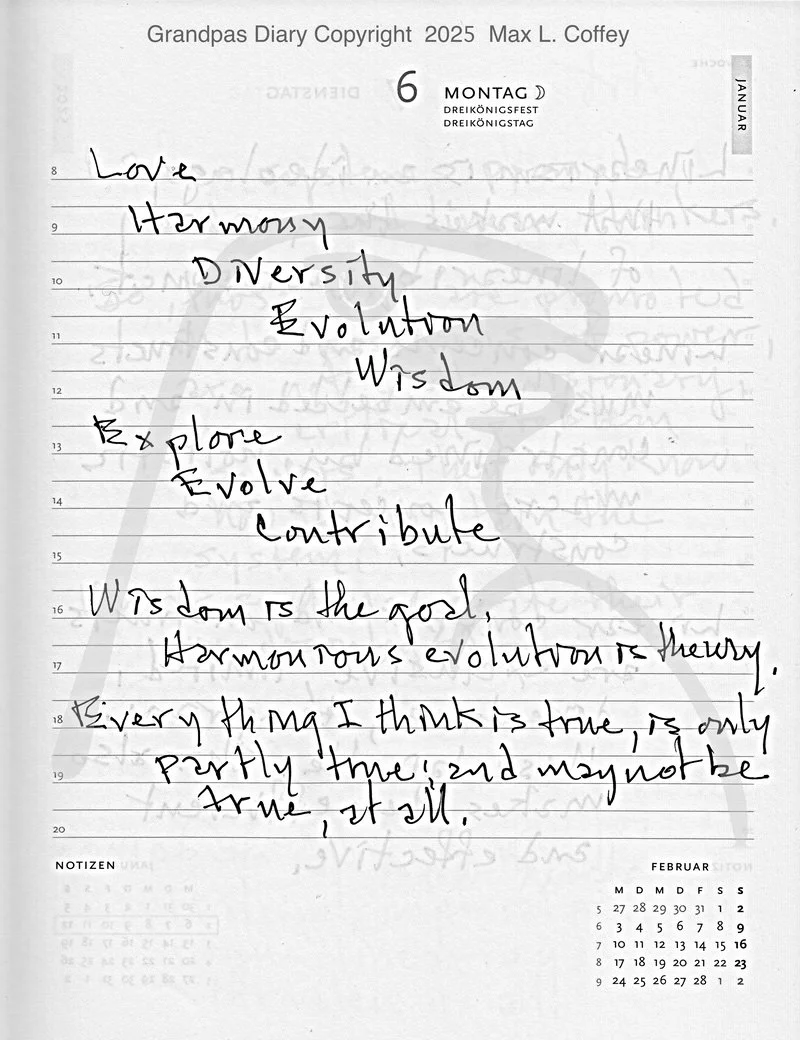 Grandpas Diary Copyright 2025 Max L. Coffey
6 MONTAG
DREIKÖNIGSFEST
DREIKÖNIGSTAG
JANUAR
8 Love
9 Harmony
10 Diversity
11 Evolution
12 Wisdom
13 Explore
14 Evolve
Contribute
15
16 Wisdom is the goal,
17 Harmonious evolution is theory.
18 Every thing I think is true, is only
19 partly true; and may not be
true, at all.
20
NOTIZEN
FEBRUAR
M D M D F S S
5 27 28 29 30 31 1 2
6 3 4 5 6 7 8 9
7 10 11 12 13 14 15 16
8 17 18 19 20 21 22 23
9 24 25 26 27 28 1 2